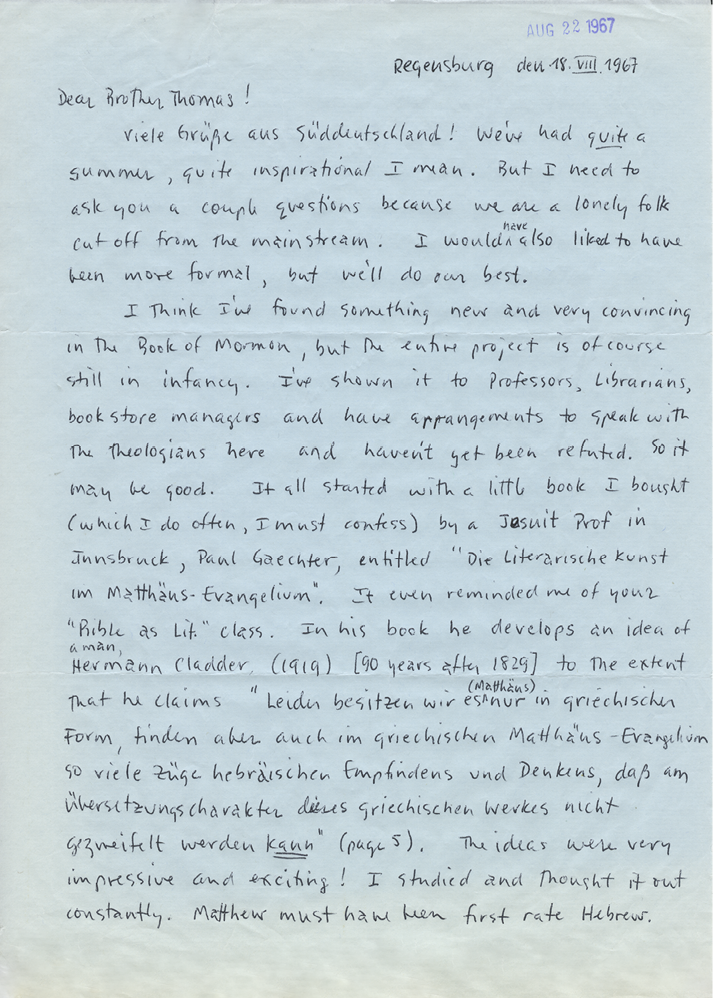 AUG 22 1967
Regensburg den 18. VIII. 1967
Dear Brother Thomas!
Viele Grüße aus Süddeutschland! We've had quite a
summer, quite inspirational I mean. But I need to
ask you a couple questions because we are a lonely folk
cut off from the mainstream. I would have also liked to have
been more formal, but we'll do our best.
I think I've found something new and very convincing
in the Book of Mormon, but the entire project is of course
still in infancy. I've shown it to Professors, Librarians,
book store managers and have arrangements to speak with
the theologians here and haven't yet been refuted. So it
may be good. It all started with a little book I bought
(which I do often, I must confess) by a Jesuit Prof in
Innsbruck, Paul Gaechter, entitled "Die Literarische Kunst
im Matthäus-Evangelium". It even reminded me of your
"Bible as Lit." class. In his book he develops an idea of
a man,
Hermann Cladder, (1919) [90 years after 1829] to the extent
that he claims "Leider besitzen wir es (Matthäus) nur in griechischer
Form, finden aber auch im griechischen Matthäus-Evangelium
so viele Züge hebräischen Empfindens und Denkens, daß am
Übersetzungscharakter dieses griechischen Werkes nicht
gezweifelt werden kann" (page 5). The ideas were very
impressive and exciting! I studied and thought it out
constantly. Matthew must have been first rate Hebrew.